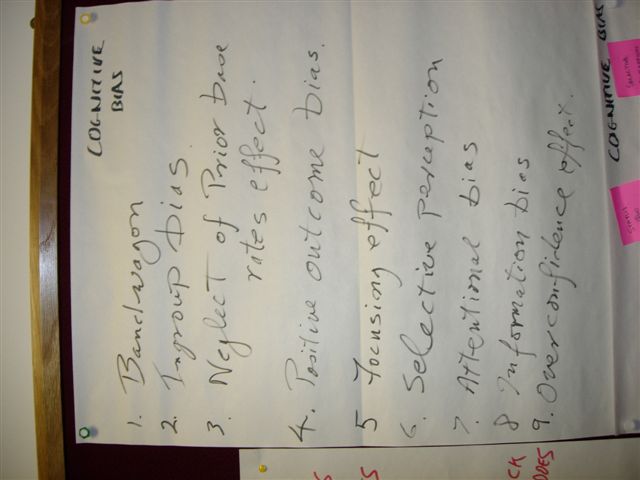 COGNITIVE
BIAS
1. Bandwagon
2. Ingroup bias.
3. Neglect of Prior base
rates effect.
4. Positive outcome bias.
5 Focusing effect
6. Selective perception
7. Attentional bias
8 Information bias
9. Overconfidence effect.
COGNITIVE BIAS